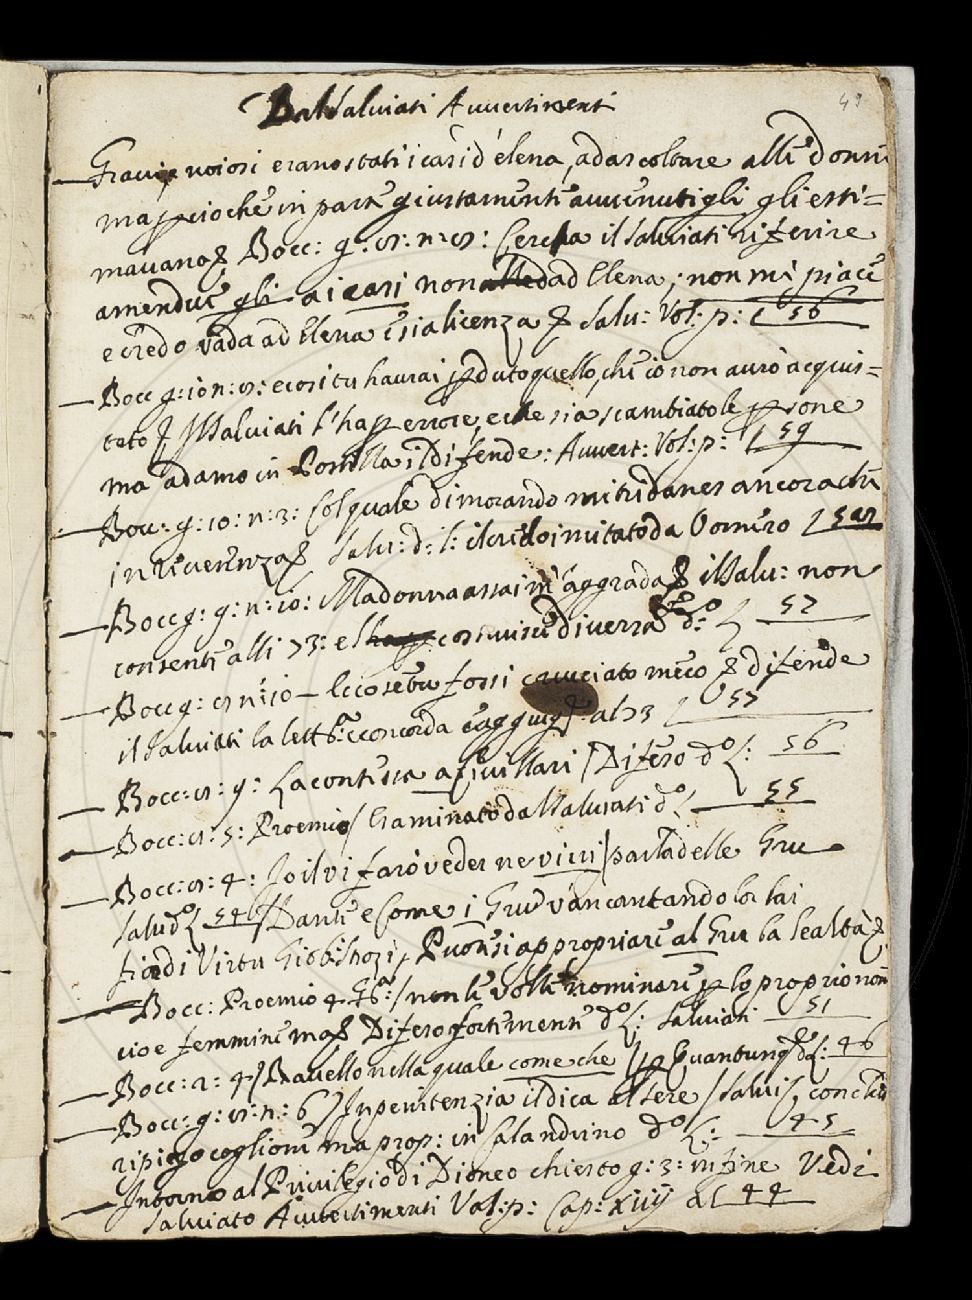 Dal Salviati Avvertimenti
49
Gravi e noiosi erano stati i casi d'elena, ad ascoltare alle donne
ma perciochè in parte giustamente avvenutigli gli esti=
mavano Bocc: g: n: Cerca il Salviati riferire
amendue gli a i casi non ad Elena; non mi piace
e credo vada ad Elena e sia licenza Salv: Vol: p: 56
Bocc g: 10 n: 8: e così tu havrai perduto quello, che io non avrò acquis=
tato Il Salviati l'ha per errore, e che sia scambiato le persone
ma adamo in Romilla il Difende: Avvert: Vol: p: 59
Bocc: g: 10: n: 3: Col quale dimorando mitridanes ancora che
in riverenza Salv: d: l: il crede imitato da Homero
Bocc g: g: n: 10: Madonna assai m'aggrada il Salv: non
consente alli 73: e l' costruisce diversa d.o 57
Bocc g: n: 10 – Ecco se tu fossi crucciato meco difende
il Salviati la lett: e concorda e aggiug: al 73 57
Bocc: g: La contessa a servillari / Difeso d.o 56
Bocc: 5: Proemio / Esaminato dal Salviati d.o 55
Bocc: 4: Io il vi farò veder ne vivi / parla delle Gru
Salv d.o 54 / Dante e Come i Gru van cantando lor lai
fior di Virtu Gio: Puossi appropriare al Gru la lealtà
Bocc: Proemio 4 / non le volle nominare per lo proprio nome
cioe femmine ma Difeso fortemente d.o Salviati 51
Bocc: 2: 4 / Ravello nella quale come che / per Quantunq d.o 46
Bocc: g: n: 6 / In penitenzia il dica al Sere / Salvi: conche
ripiego coglioni ma prop: in Salandrino d.o 45
Intorno al Privilegio di Dioneo chiesto g: 3: in fine Vedi
Salviato Avvertimenti Vol: p: Cap: xiiij al 44